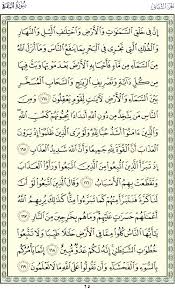 إِنَّ فِي خَلْقِ ٱلسَّمَٰوَٰتِ وَٱلْأَرْضِ وَٱخْتِلَٰفِ ٱلَّيْلِ وَٱلنَّهَارِ
وَٱلْفُلْكِ ٱلَّتِي تَجْرِي فِي ٱلْبَحْرِ بِمَا يَنفَعُ ٱلنَّاسَ وَمَآ أَنزَلَ ٱللَّهُ
مِنَ ٱلسَّمَآءِ مِن مَّآءٍ فَأَحْيَا بِهِ ٱلْأَرْضَ بَعْدَ مَوْتِهَا وَبَثَّ فِيهَا
مِن كُلِّ دَآبَّةٍ وَتَصْرِيفِ ٱلرِّيَٰحِ وَٱلسَّحَابِ ٱلْمُسَخَّرِ
بَيْنَ ٱلسَّمَآءِ وَٱلْأَرْضِ لَءَايَٰتٍ لِّقَوْمٍ يَعْقِلُونَ ١٦٤ وَمِنَ
ٱلنَّاسِ مَن يَتَّخِذُ مِن دُونِ ٱللَّهِ أَندَادًا يُحِبُّونَهُمْ كَحُبِّ ٱللَّهِ
وَٱلَّذِينَ ءَامَنُوٓا۟ أَشَدُّ حُبًّا لِّلَّهِ وَلَوْ يَرَى ٱلَّذِينَ ظَلَمُوٓا۟ إِذْ يَرَوْنَ
ٱلْعَذَابَ أَنَّ ٱلْقُوَّةَ لِلَّهِ جَمِيعًا وَأَنَّ ٱللَّهَ شَدِيدُ ٱلْعَذَابِ ١٦٥
إِذْ تَبَرَّأَ ٱلَّذِينَ ٱتُّبِعُوا۟ مِنَ ٱلَّذِينَ ٱتَّبَعُوا۟ وَرَأَوُا۟ ٱلْعَذَابَ
وَتَقَطَّعَتْ بِهِمُ ٱلْأَسْبَابُ ١٦٦ وَقَالَ ٱلَّذِينَ ٱتَّبَعُوا۟ لَوْ أَنَّ
لَنَا كَرَّةً فَنَتَبَرَّأَ مِنْهُمْ كَمَا تَبَرَّءُوا۟ مِنَّا كَذَٰلِكَ يُرِيهِمُ ٱللَّهُ
أَعْمَٰلَهُمْ حَسَرَٰتٍ عَلَيْهِمْ وَمَا هُم بِخَٰرِجِينَ مِنَ ٱلنَّارِ ١٦٧
يَٰٓأَيُّهَا ٱلنَّاسُ كُلُوا۟ مِمَّا فِي ٱلْأَرْضِ حَلَٰلًا طَيِّبًا وَلَا تَتَّبِعُوا۟
خُطُوَٰتِ ٱلشَّيْطَٰنِ إِنَّهُ لَكُمْ عَدُوٌّ مُّبِينٌ ١٦٨ إِنَّمَا يَأْمُرُكُم
بِٱلسُّوٓءِ وَٱلْفَحْشَآءِ وَأَن تَقُولُوا۟ عَلَى ٱللَّهِ مَا لَا تَعْلَمُونَ ١٦٩
٢٥